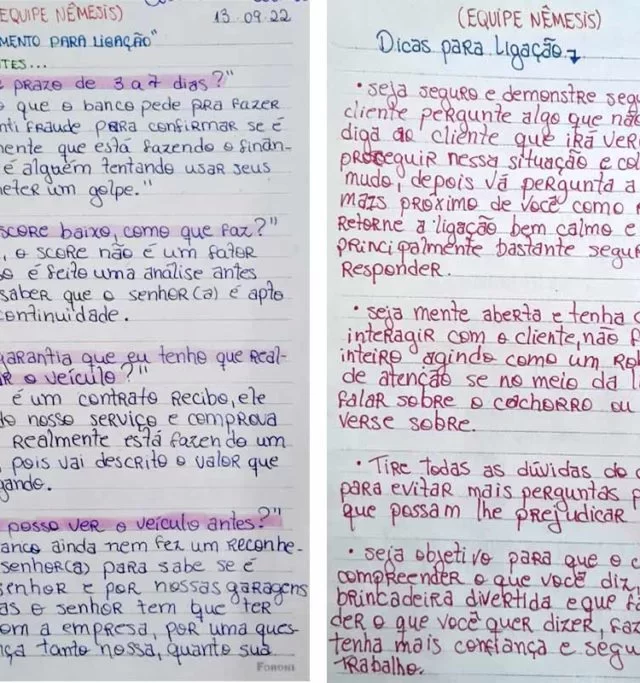 (EQUIPE NÊMESIS) 13.09.22
MENTO PARA LIGAÇÃO"
TES...
PRAZO de 3 a 7 dias?"
que o banco pede pRa fazer
nti fraude para confirmar se é
mente que está fazendo o finan-
é alguém tentando usar seus
meter um golpe."
score baixo, como que faz?"
, o score não é um fator
é feito uma análise antes
saber que o senhor(a) é apto
continuidade.
garantia que eu tenho que Real-
R o veículo?"
é um contrato Recibo, ele
do nosso serviço e comprova
Realmente está fazendo um
, pois vai descrito o valor que
gando.
posso ver o veículo antes?"
banco ainda nem fez um reconhe-
senhor(a) para sabe se é
senhor e por nossas garagens
as o senhor tem que ter
om a empresa, por uma ques-
nça tanto nossa, quanto sua
FORONI
(EQUIPE NÊMESIS)
Dicas para Ligação
• seja seguro e demonstre segu
cliente pergunte algo que não
diga ao cliente que irá ver
prosseguir nessa situação e col
mudo, depois vá pergunta a
mais próximo de você como
Retorne a ligação bem calmo e
principalmente bastante segur
Responder.
• seja mente aberta e tenha
interagir com o cliente, não f
inteiro agindo como um Ro
de atenção se no meio da l
falar sobre o cachorro ou
verse sobre.
• Tire todas as dúvidas do c
para evitar mais perguntas p
que possam lhe prejudicar
• seja objetivo para que o c
compreender o que você diz
brincadeira divertida e que f
der o que você quer dizer, faz
tenha mais confiança e segu
trabalho.